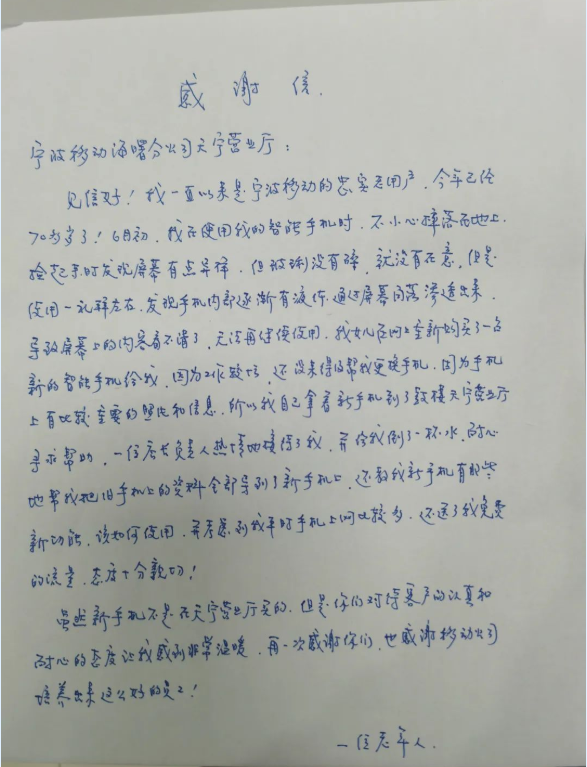 感谢信.
宁波移动海曙分公司天宁营业厅:
见信好!我一直以来是宁波移动的忠实老用户,今年已经
70多岁了!6月初,我在使用我的智能手机时,不小心摔落在地上,
捡起来时发现屏幕有点异样,但玻璃没有碎,就没有在意,但是
使用一礼拜左右,发现手机内部逐渐有液体通过屏幕间隙渗透出来,
导致屏幕上的内容看不清了,无法再继续使用.我女儿在网上重新购买了一台
新的智能手机给我,因为工作较忙,还没来得及帮我更换手机,因为手机
上有比较重要的照片和信息,所以我自己拿着新手机到了鼓楼天宁营业厅
寻求帮助,一位店长负责人热情地接待了我,并给我倒了一杯水,耐心
地帮我把旧手机上的资料全部导到了新手机上,还教我新手机有哪些
新功能,该如何使用,并考虑到我平时手机上网比较多,还送了我免费
的流量,态度十分亲切!
虽然新手机不是在天宁营业厅买的,但是你们对待客户的认真和
耐心的态度让我感到非常温暖,再一次感谢你们,也感谢移动公司
培养出来这么好的员工!
一位老年人.